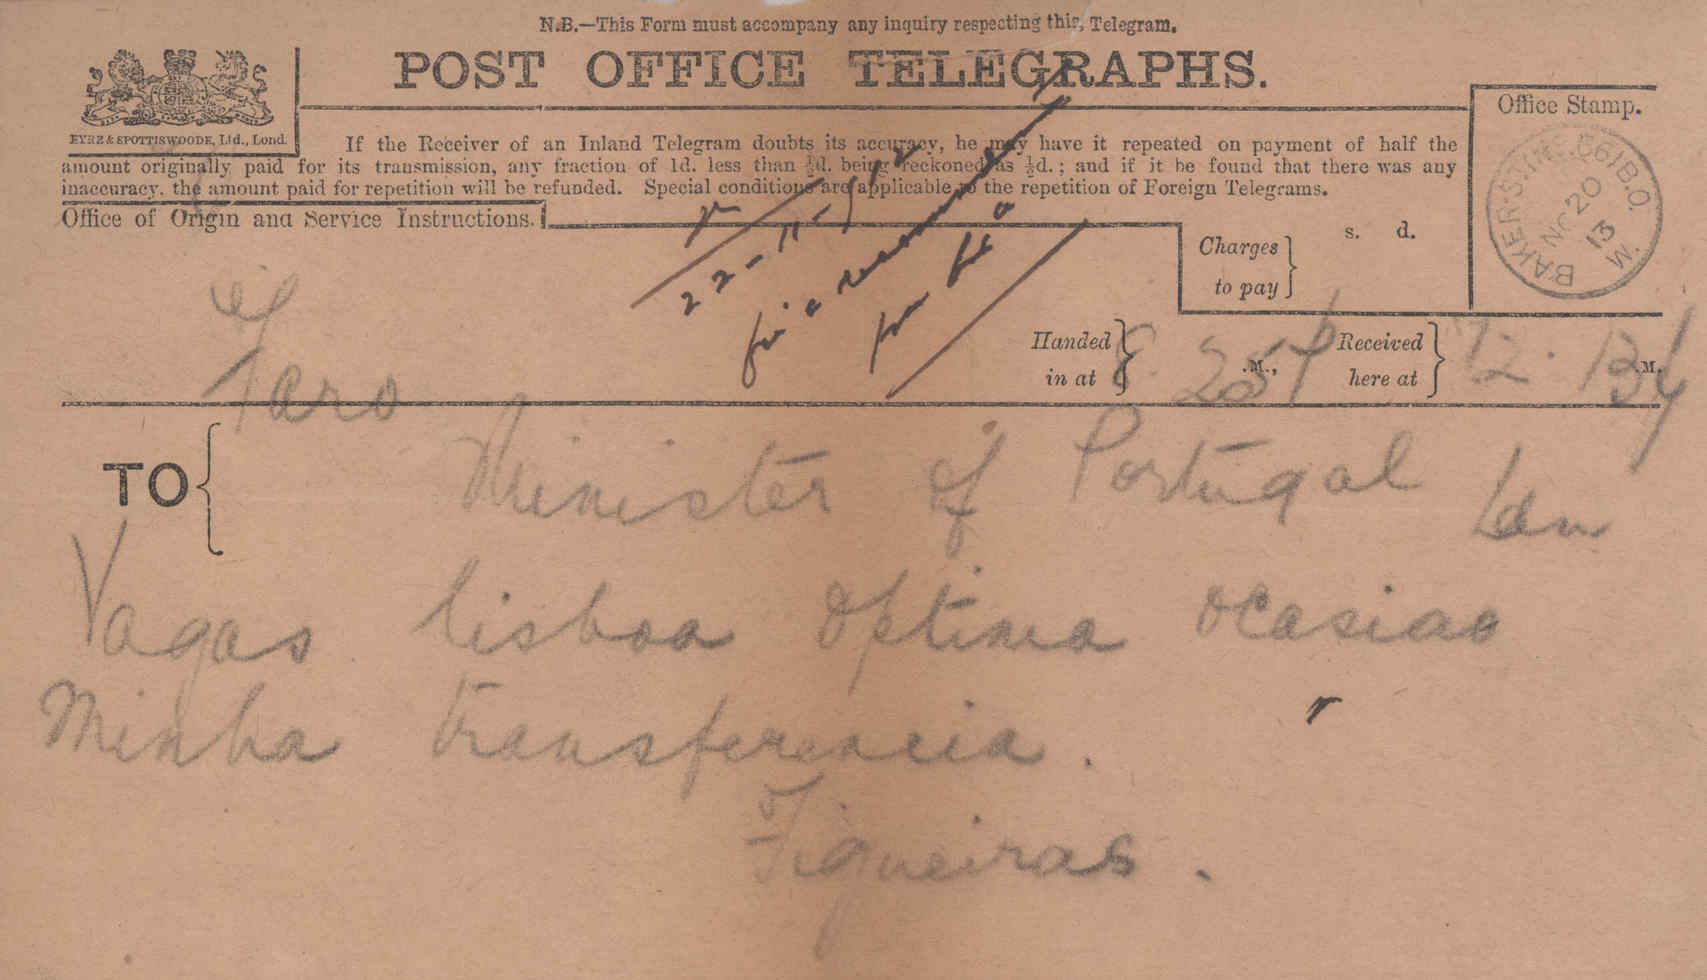 N.B.—This Form must accompany any inquiry respecting this Telegram.
POST OFFICE TELEGRAPHS.
EYRE & SPOTTISWOODE, Ltd., Lond.
If the Receiver of an Inland Telegram doubts its accuracy, he may have it repeated on payment of half the
amount originally paid for its transmission, any fraction of 1d. less than ½d. being reckoned as ½d.; and if it be found that there was any
inaccuracy, the amount paid for repetition will be refunded. Special conditions are applicable to the repetition of Foreign Telegrams.
Office of Origin and Service Instructions.
Office Stamp.
BAKER·ST
NO 20
13
W.
Charges to pay
s. d.
22-11-
Handed in at 8.25 P .M.,
Received here at 12.13 M.
Faro
TO
Minister of Portugal Ldn
Vagas lisboa optima ocasiao
Minha transferencia.
Figueiras.